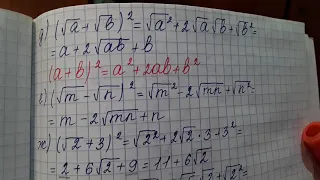 д) (√a + √b)² = √a² + 2√a√b + √b² =
= a + 2√ab + b
(a + b)² = a² + 2ab + b²
(√m − √n)² = √m² − 2√mn + √n² =
= m − 2√mn + n
ж) (√2 + 3)² = √2² + 2√2 · 3 + 3² =
= 2 + 6√2 + 9 = 11 + 6√2